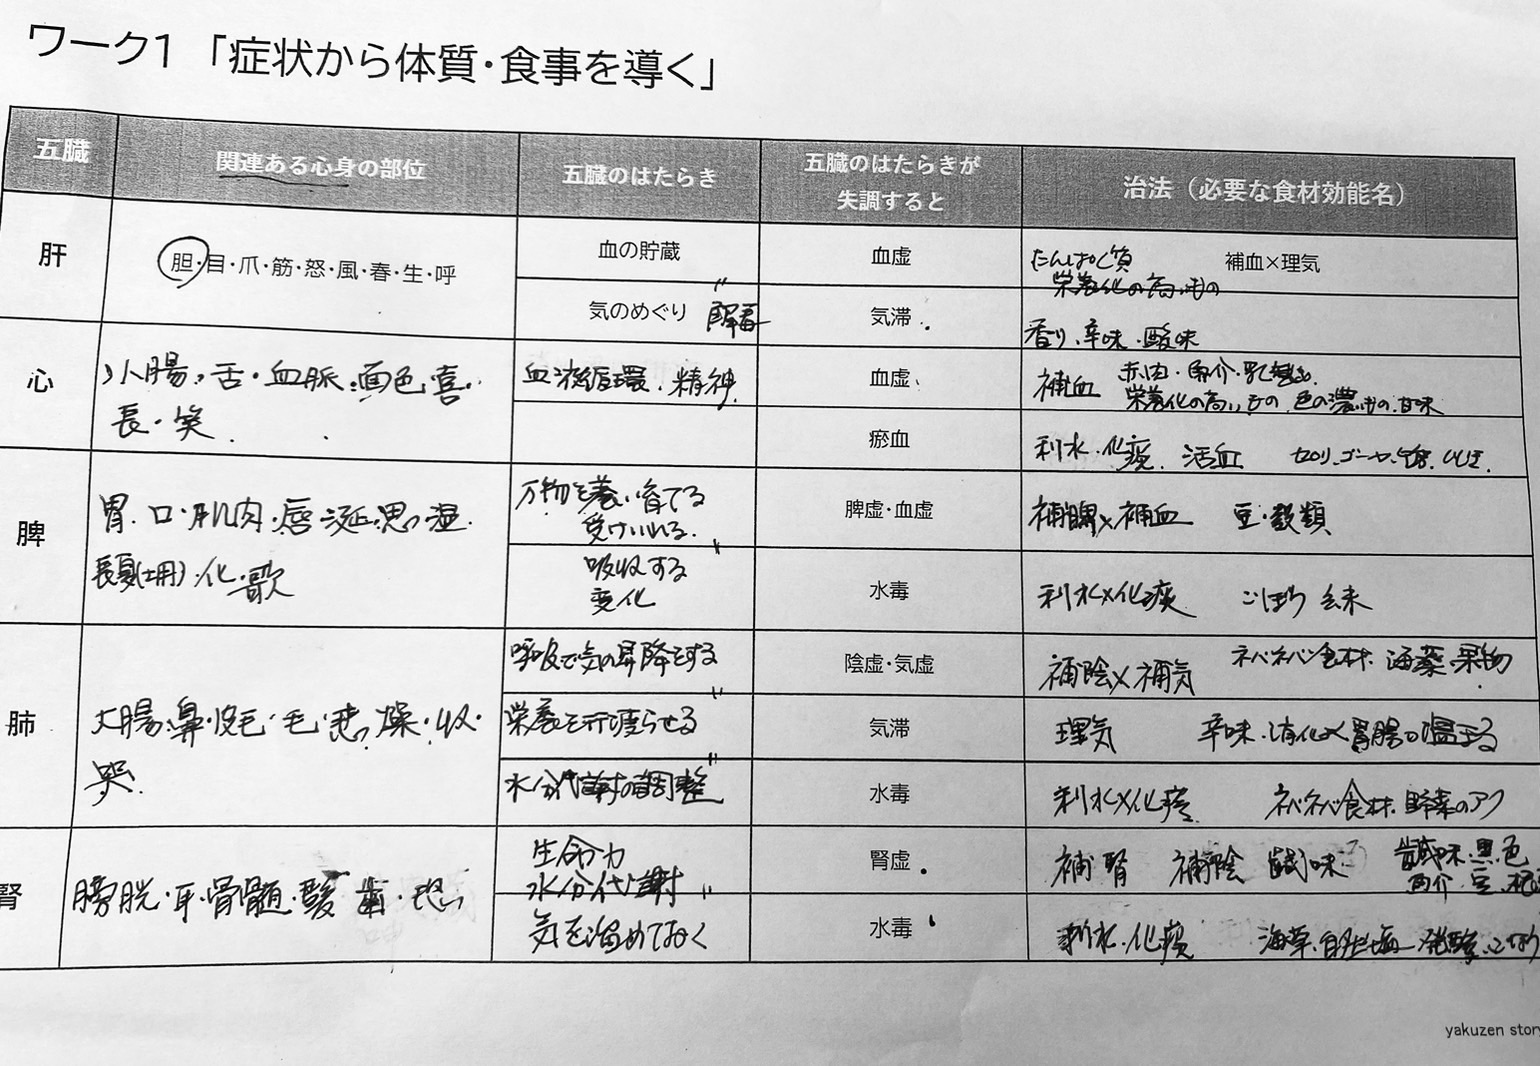 ワーク1 「症状から体質・食事を導く」
五臓 関連ある心身の部位 五臓のはたらき 五臓のはたらきが失調すると 治法（必要な食材効能名）
肝 胆・目・爪・筋・怒・風・春・生・呼
血の貯蔵 血虚 たんぱく質 補血×理気
栄養価の高いもの
気のめぐり 解毒 気滞 香り、辛味・酸味
心 小腸、舌・血脈・面色・喜・
長・笑
血液循環・精神 血虚 補血 赤肉・魚介・乳製品
栄養化の高いもの 色の濃いもの 甘味
瘀血 利水・化痰 活血 セロリ、ゴーヤ
脾 胃・口・肌肉・唇・涎・思・湿
長夏(土用)・化・歌
万物を養い育てる
受けいれる
脾虚・血虚 補脾×補血 豆・穀類
吸収する
変化
水毒 利水×化痰 ごぼう
肺 大腸・鼻・皮毛・毛・悲・燥・収・
哭
呼吸で気の昇降をする 陰虚・気虚 補陰×補気 ネバネバ食材 海藻・果物
栄養を行き渡らせる 気滞 理気 辛味・消化×胃腸の温まる
水分代謝の調整 水毒 利水×化痰 ネバネバ食材 野菜のアク
腎 膀胱・耳・骨髄・髪 歯・恐
生命力
水分代謝
腎虚 補腎 補陰 鹹味 鹹味・黒色
魚介・豆
気を溜めておく 水毒 利水・化痰 海草・自然塩 発酵・ごぼう
yakuzen story